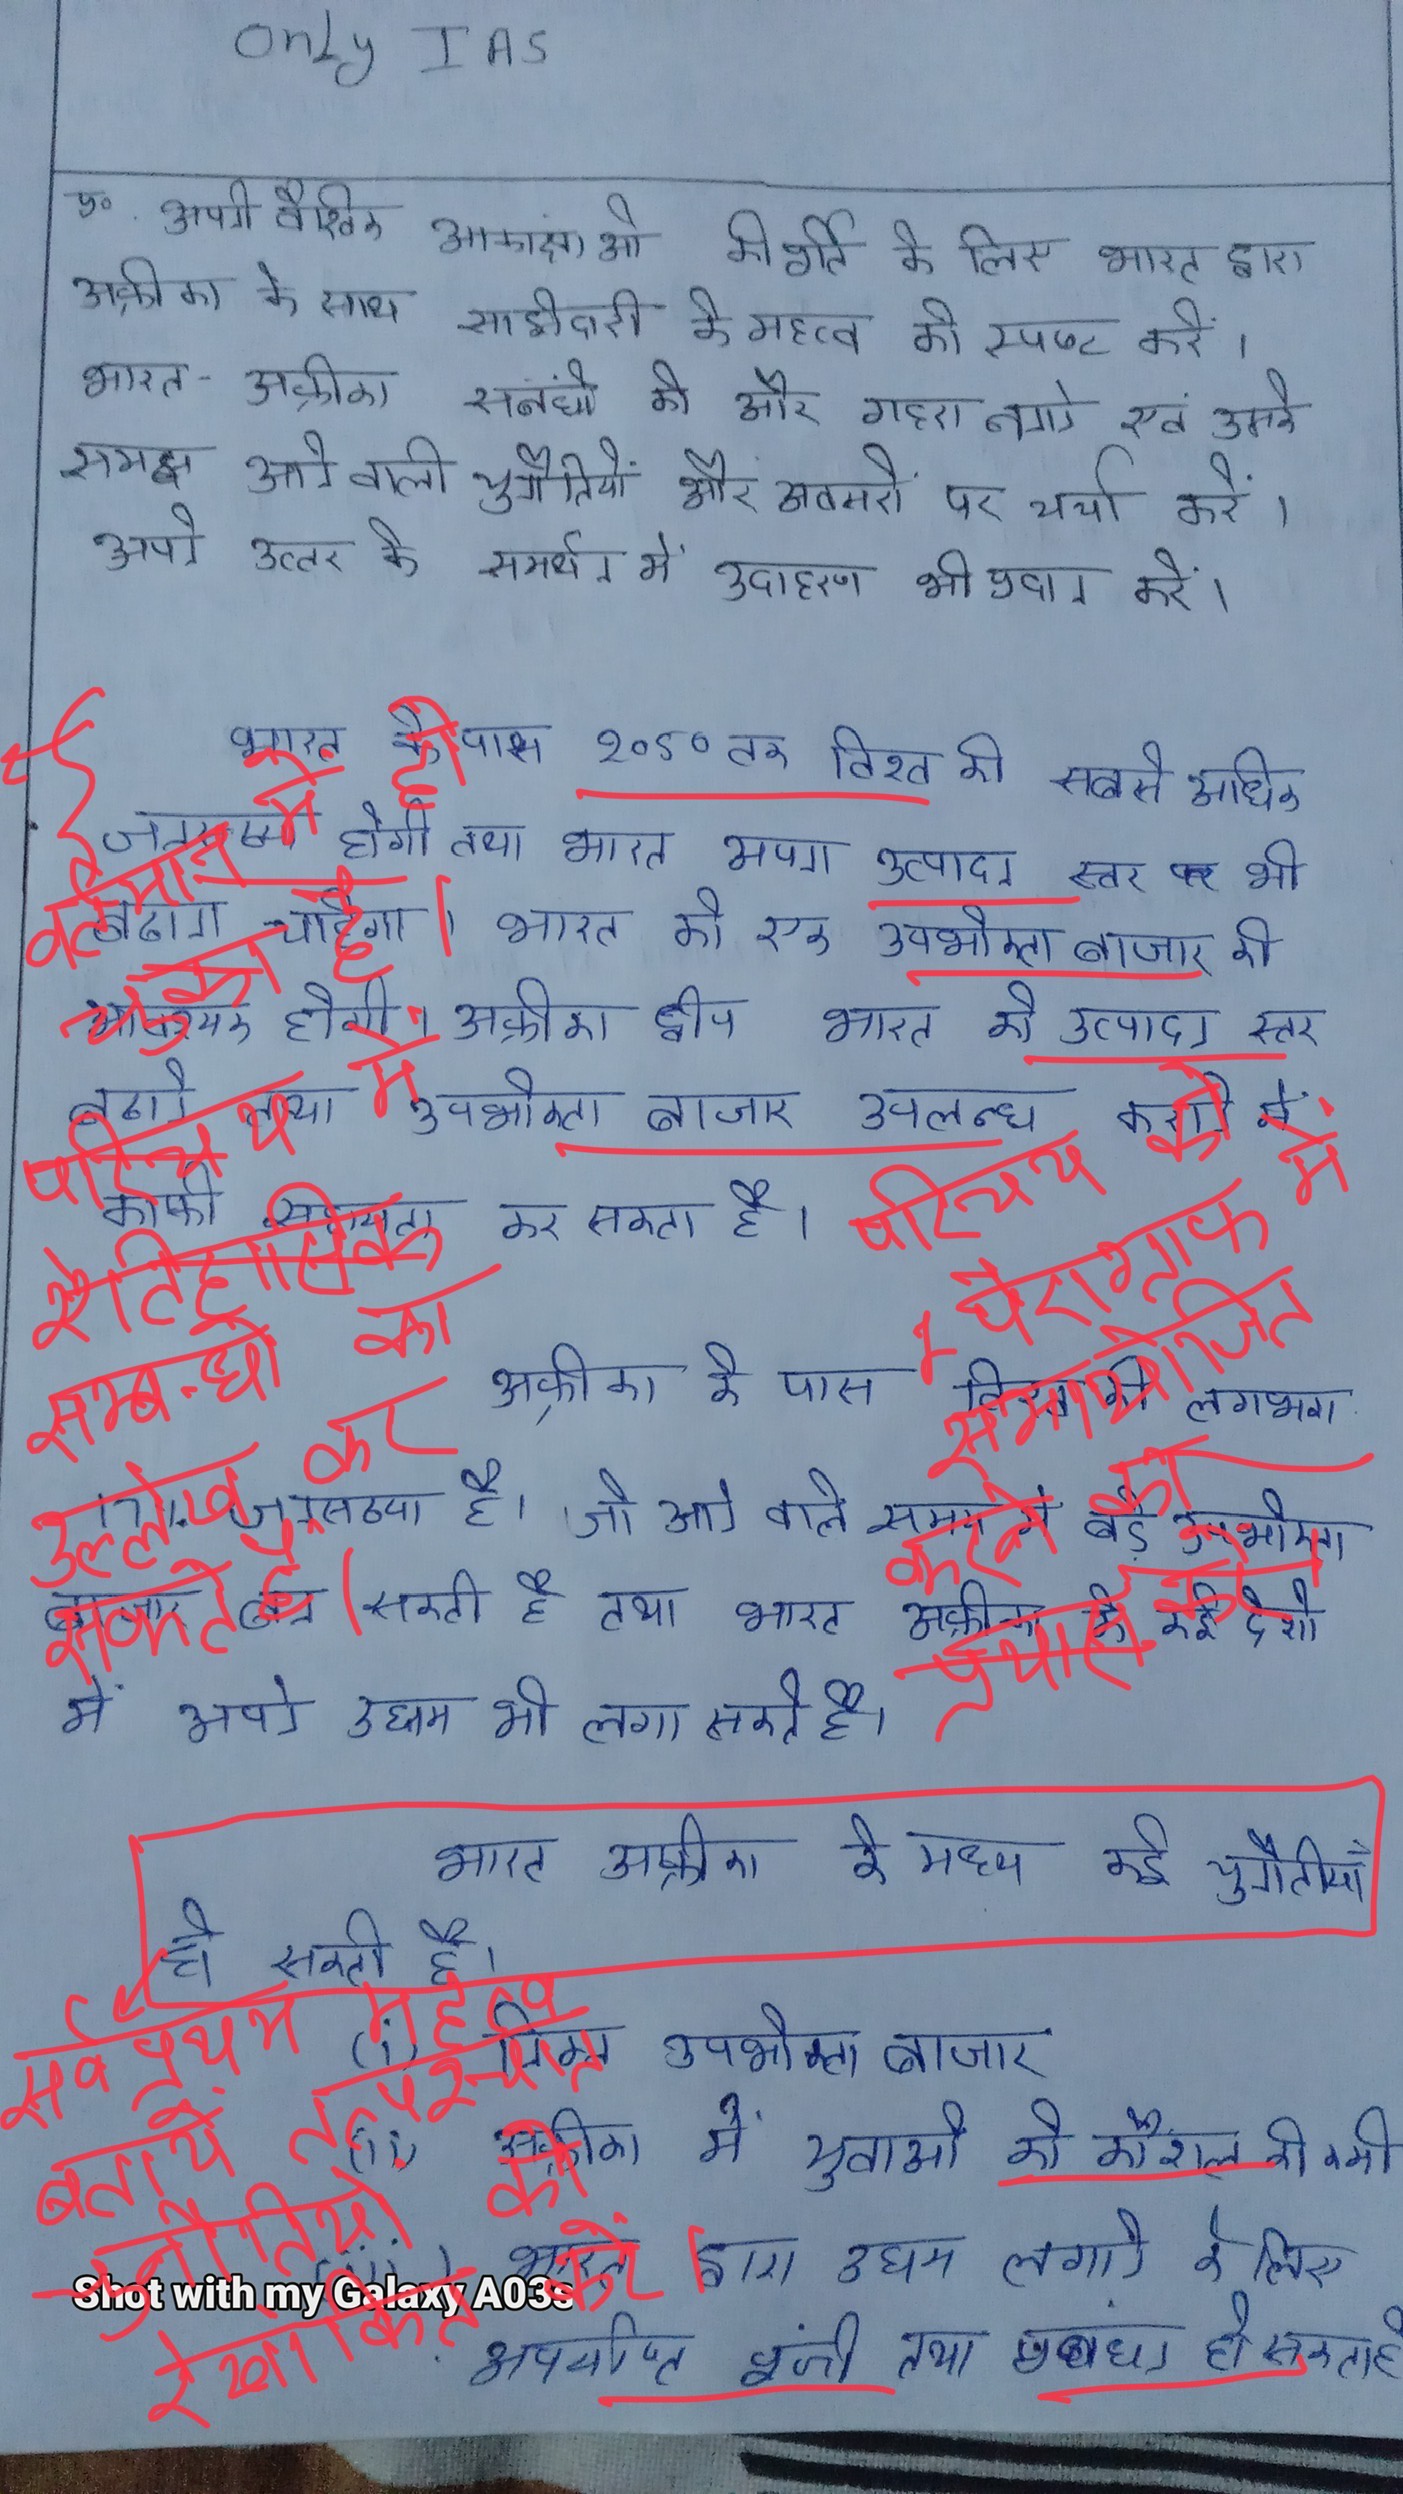 Only IAS
प्र० अपनी वैश्विक आकांक्षाओ की पूर्ति के लिए भारत द्वारा
अफ्रीका के साथ साझेदारी के महत्व को स्पष्ट करें।
भारत- अफ्रीका सबंधों को और गहरा बनाने एवं उसके
समक्ष आने वाली चुनौतियों और अवसरों पर चर्चा करें।
अपने उत्तर के समर्थन में उदाहरण भी प्रदान करें।
भारत के पास २०५० तक विश्व की सबसे अधिक
जनसंख्या होगी तथा भारत अपना उत्पादन स्तर पर भी
बढाना चाहेगा। भारत को एक उपभोक्ता बाजार की
आवश्यक होगी। अफ्रीका द्वीप भारत को उत्पादन स्तर
बढाने तथा उपभोक्ता बाजार उपलब्ध कराने में
काफी सहायता कर सकता है।
वर्तमान में हो
चुका है।
परिचय में
ऐतिहासिक
सम्बन्धो का
उल्लेख कर
सकते थे।
परिचय को
1 पैराग्राफ में
समायोजित
करने का
प्रयास करें
अफ्रीका के पास विश्व की लगभग
17%. जनसंख्या है। जो आने वाले समय में बड़े उपभोक्ता
बाजार बन सकती है तथा भारत अफ्रीका के कई देशो
में अपने उद्यम भी लगा सकते है।
भारत अफ्रीका के मध्य कई चुनौतीयाँ
हो सकती है।
(i) निम्न उपभोक्ता बाजार
(ii) अफ्रीका में युवाओ को कौशल की कमी
(iii) भारत द्वारा उद्यम लगाने के लिए
अपर्याप्त पूंजी तथा प्रबंधन हो सकता है
सर्वप्रथम महत्व
बतायें तत्पश्चात
चुनौतियों को
रेखांकित करें।
Shot with my Galaxy A03s